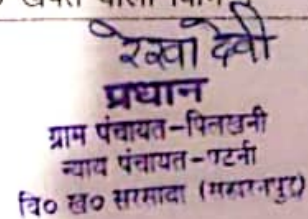 रेखा देवी
प्रधान
ग्राम पंचायत-पिलखनी
न्याय पंचायत-पटनी
वि० ख० सरसावा (सहारनपुर)